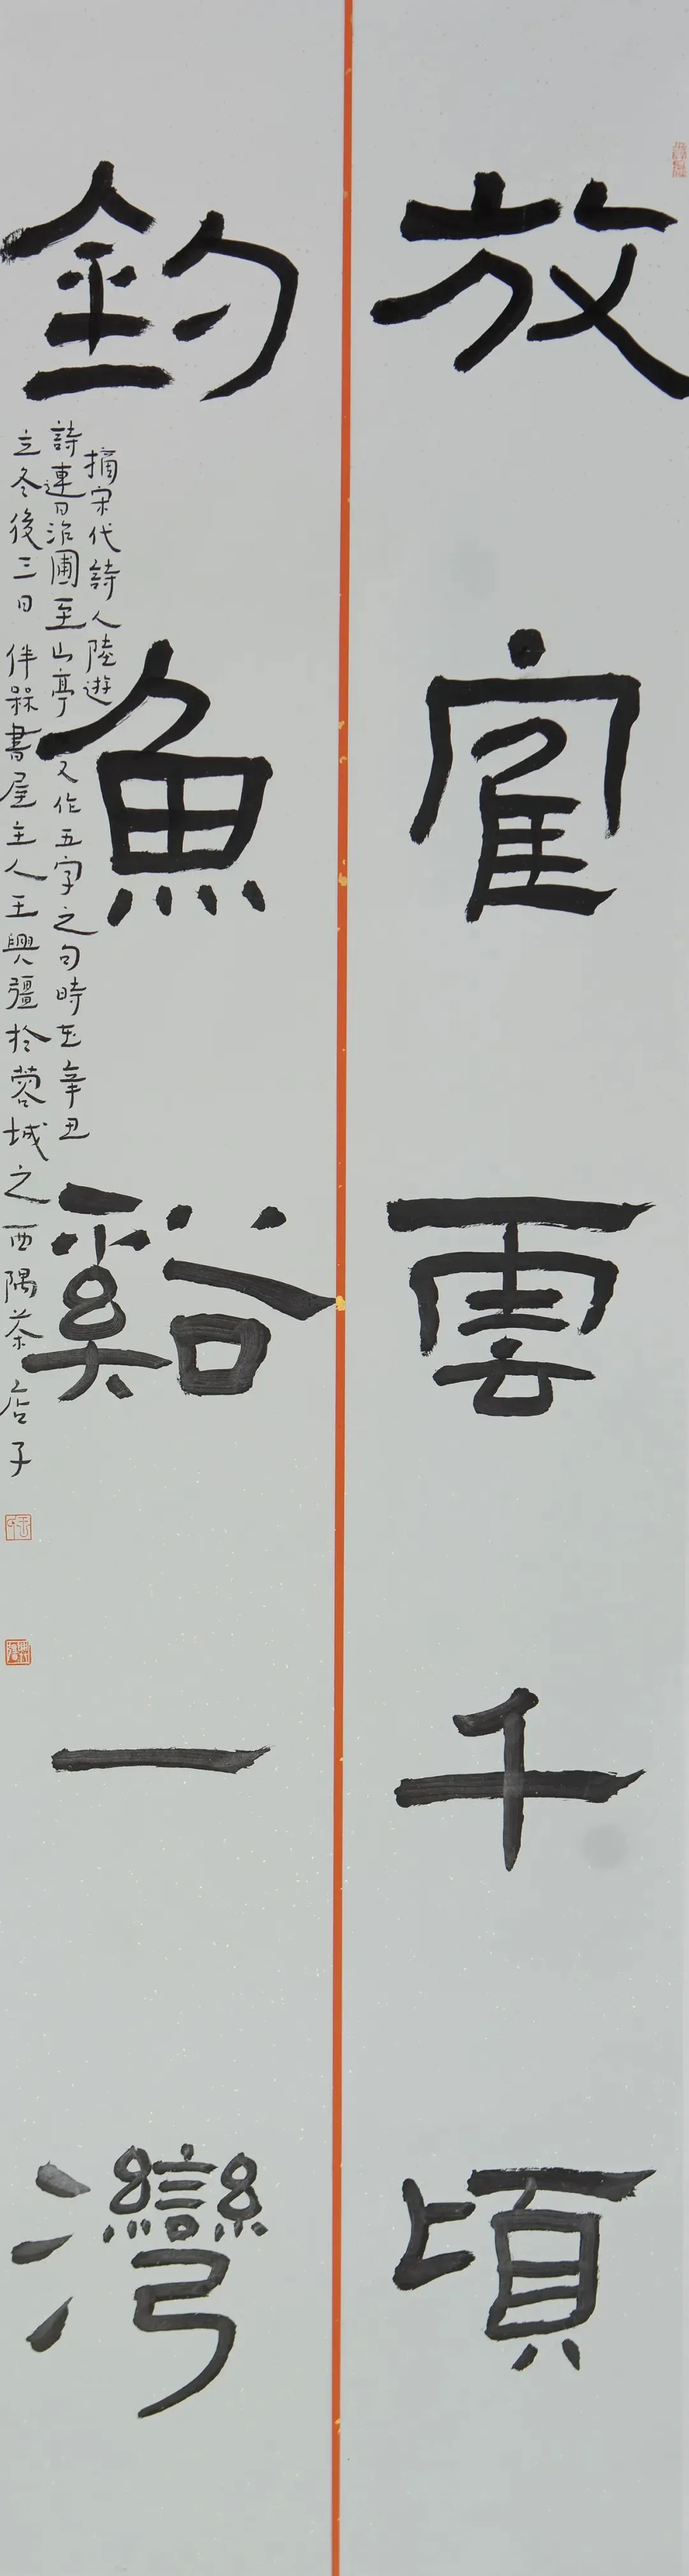 放隺雲千頃
釣魚谿一灣
摘宋代詩人陸遊
詩連日治圃至山亭又作五字之句時在辛丑
立冬後三日伴槑書屋主人王興彊於蓉城之西隅茶店子